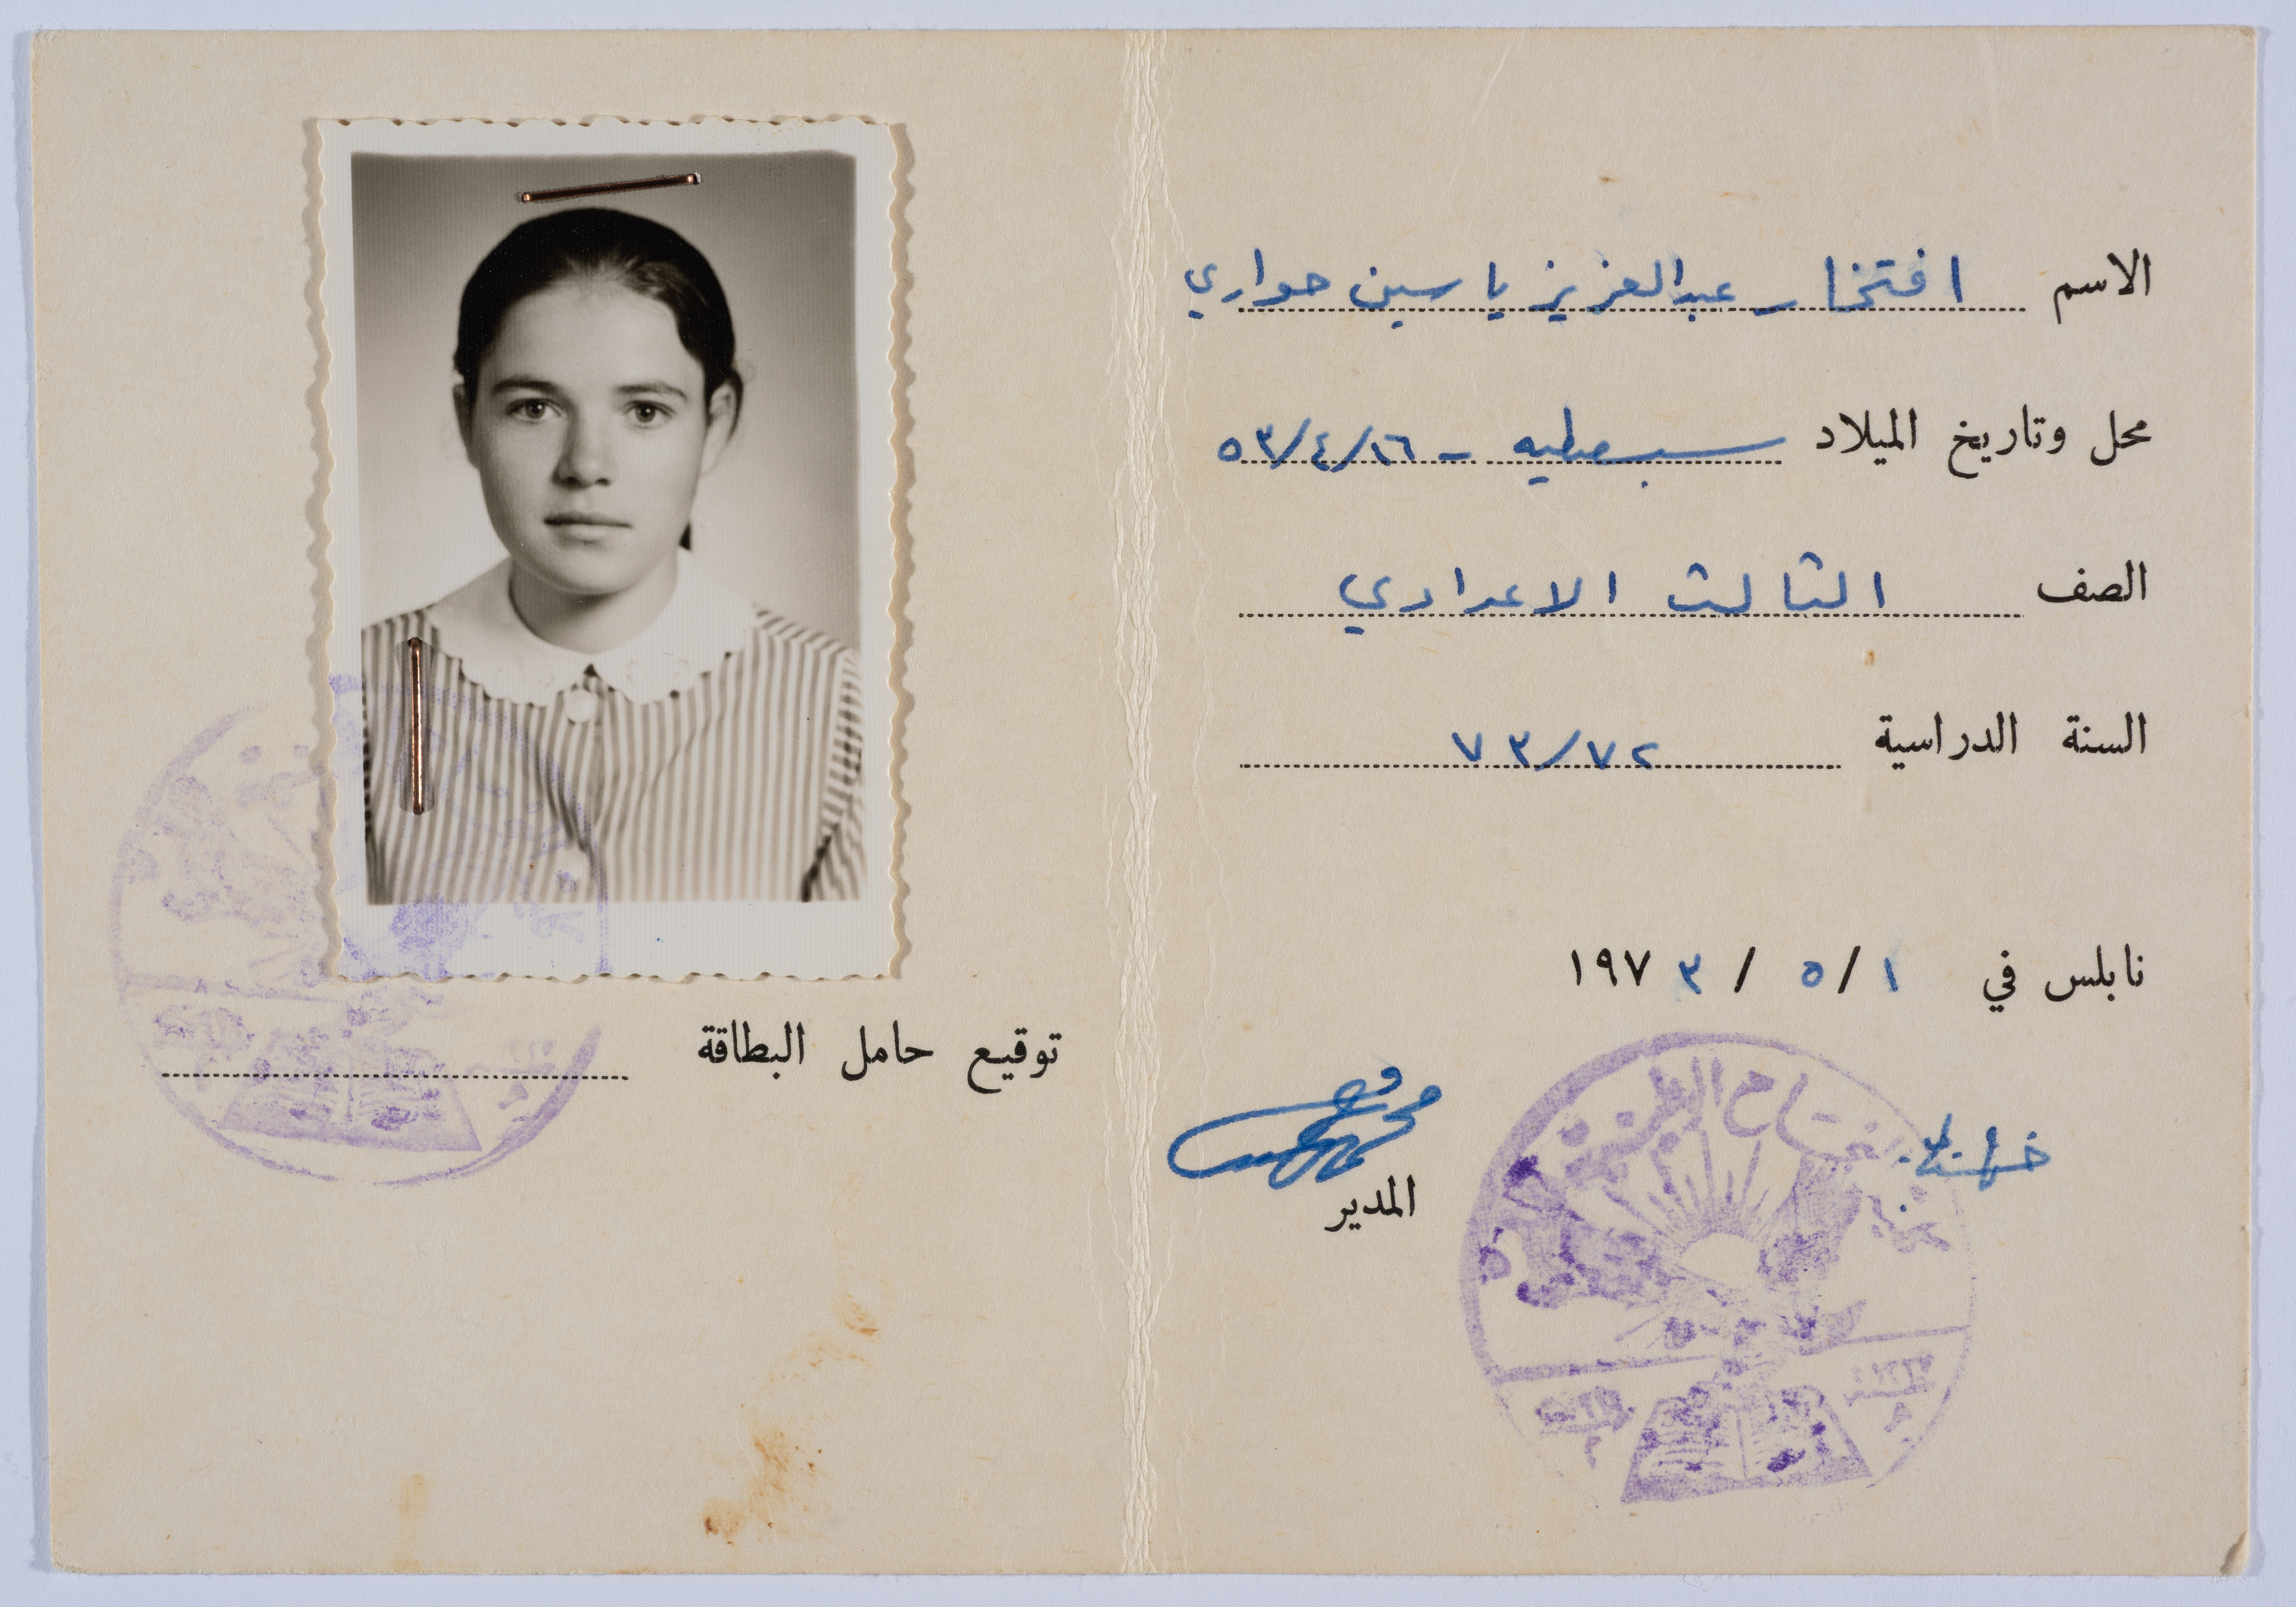 الاسم افتخار عبدالعزيز ياسين حواري
محل وتاريخ الميلاد سبسطيه - ١٦/٤/٥٣
الصف الثالث الاعدادي
السنة الدراسية ٧٣/٧٢
نابلس في ١/٥/١٩٧٣
المدير
توقيع حامل البطاقة